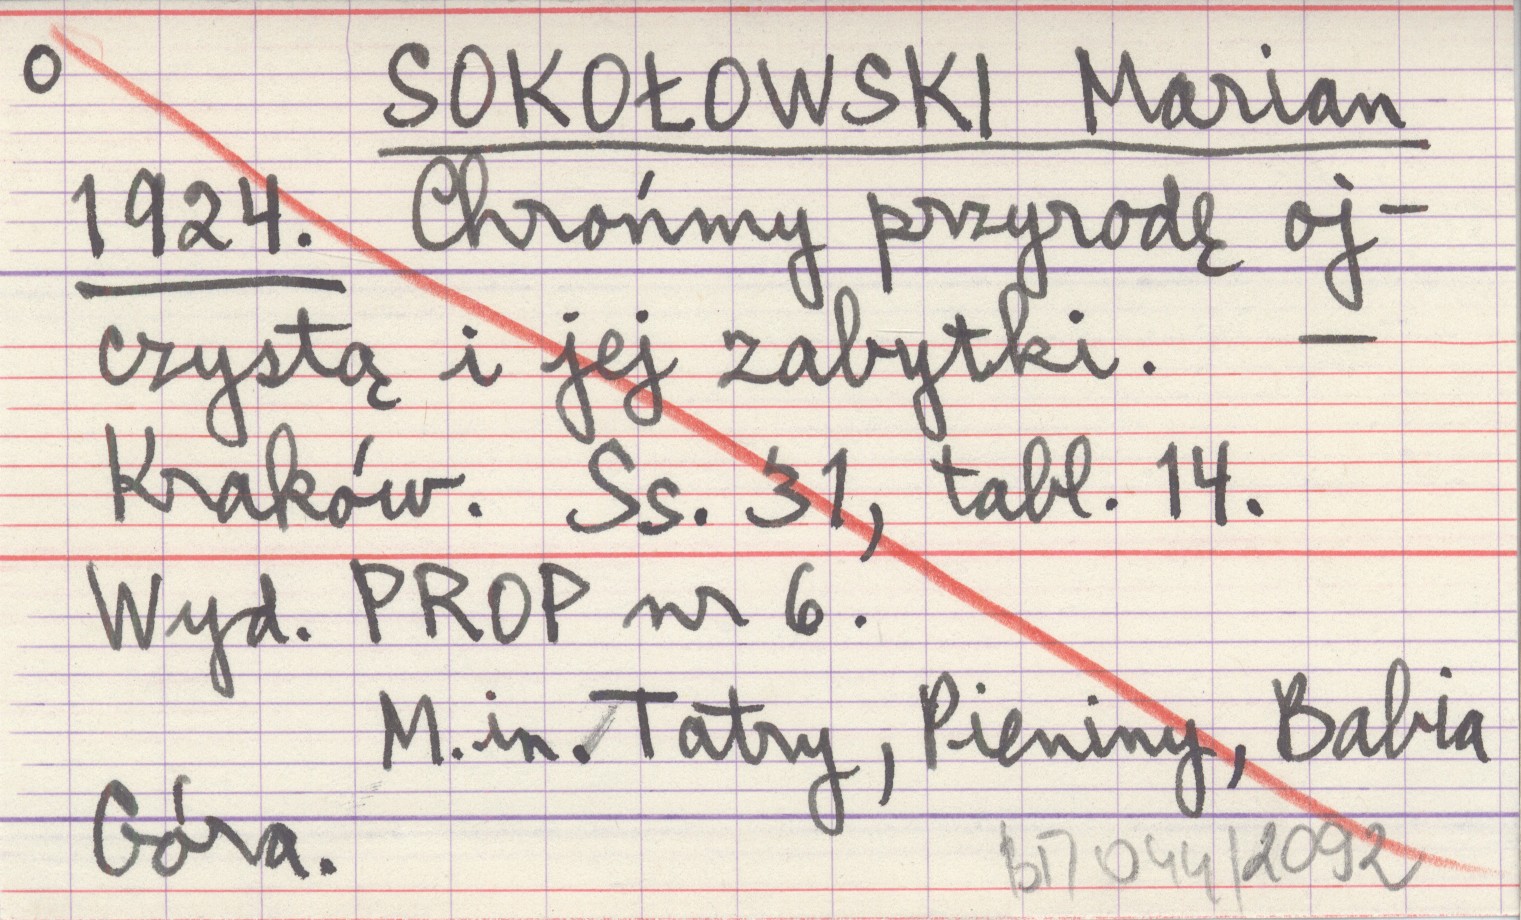 o SOKOŁOWSKI Marian
1924. Chrońmy przyrodę oj-
czystą i jej zabytki. —
Kraków. Ss. 31, tabl. 14.
Wyd. PROP nr 6.
M.in. Tatry, Pieniny, Babia
Góra.
044/2092